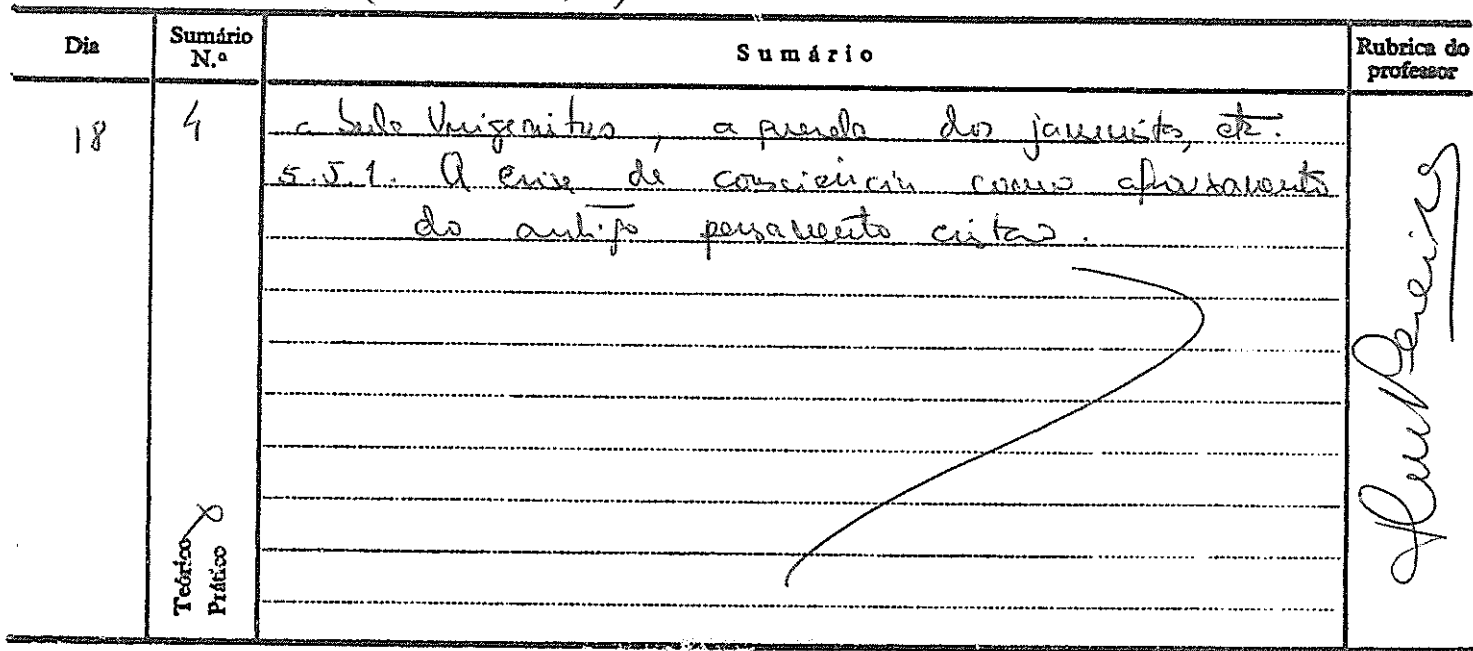 Dia
Sumário N.º
Sumário
Rubrica do professor
18
4
a bula Unigenitus, a querela dos jansenistas, etc.
5.5.1. A crise de consciência como
do antigo pensamento cristão.
Teórico
Prático
Pereira